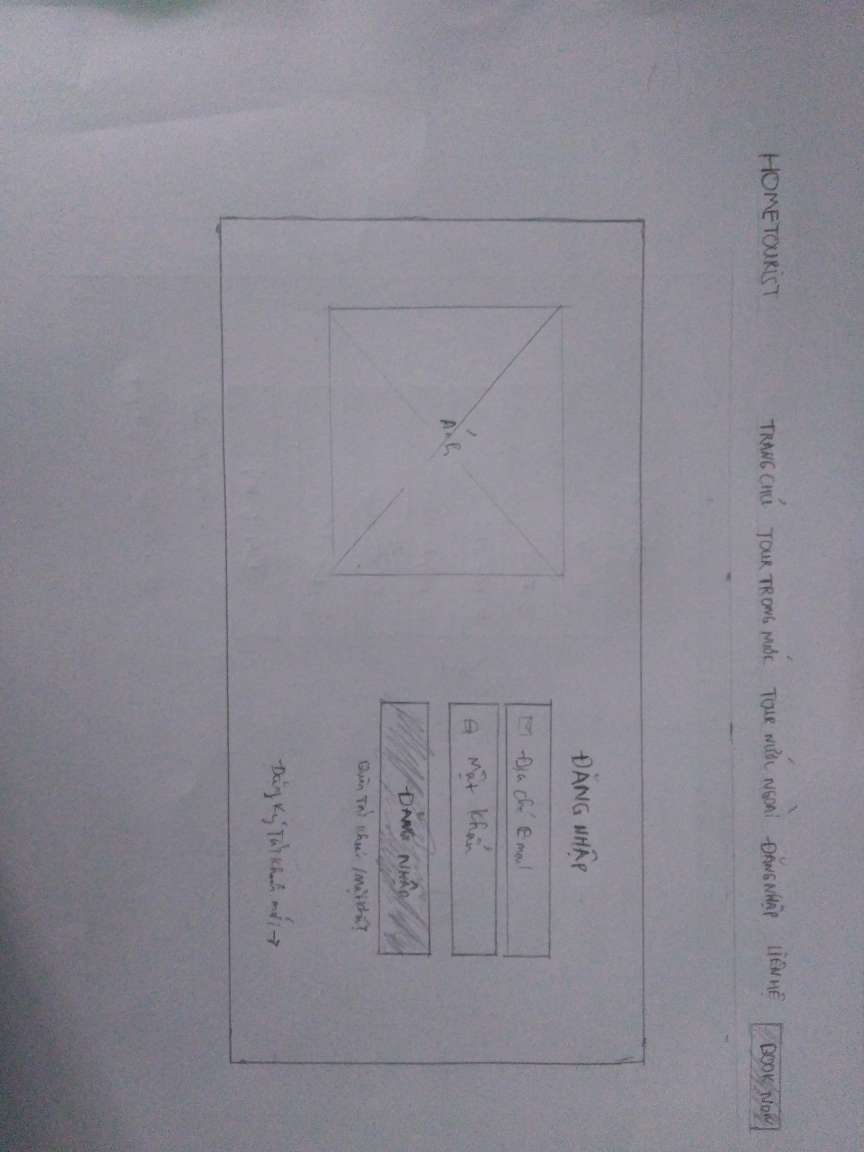 HOMETOURIST TRANG CHỦ TOUR TRONG NƯỚC TOUR NƯỚC NGOÀI ĐĂNG NHẬP LIÊN HỆ BOOK NOW
Ảnh
ĐĂNG NHẬP
Địa chỉ Email
Mật khẩu
ĐĂNG NHẬP
Quên Tài khoản / Mật khẩu?
Đăng Ký Tài khoản mới →